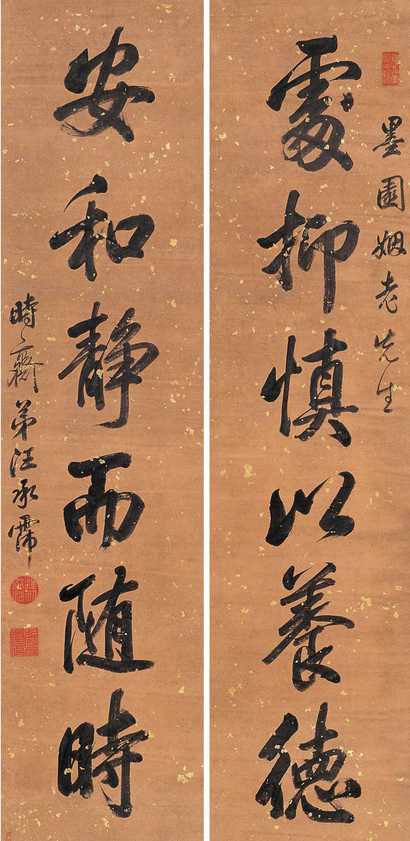 墨園姻老先生
處抑慎以養德
安和静而随時
時齋弟汪承霈